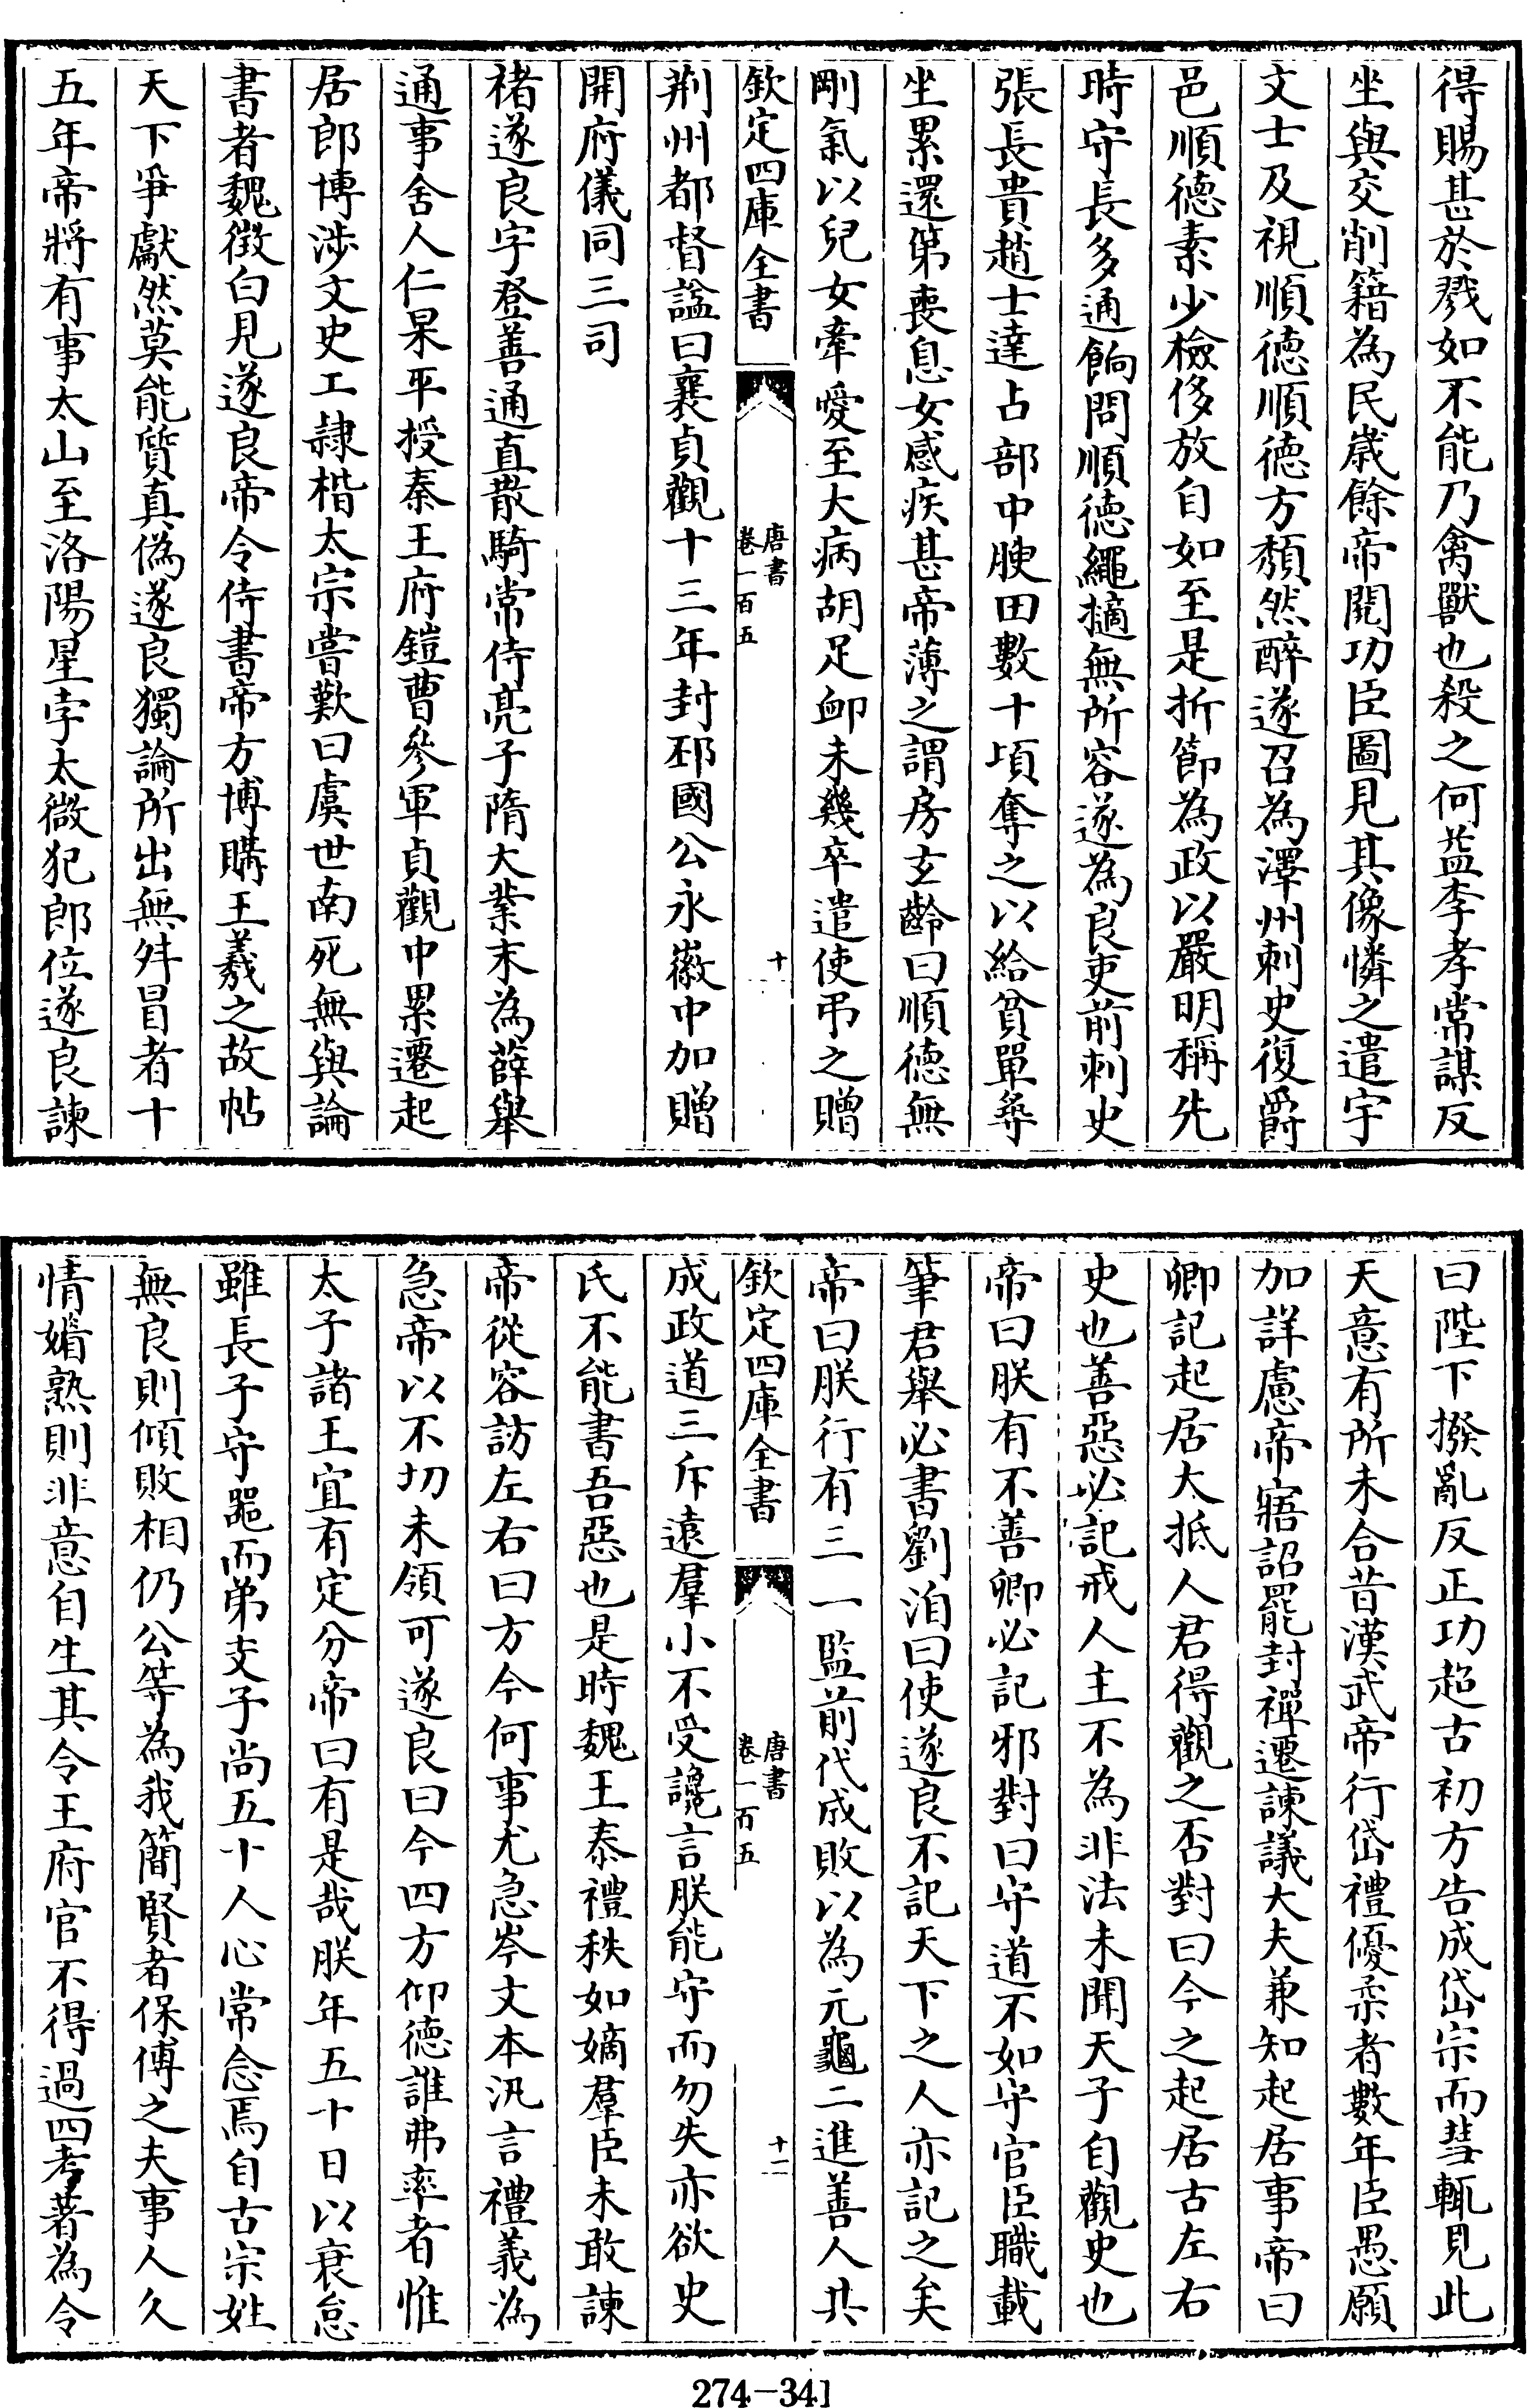 得賜甚於戮如不能乃禽獸也殺之何益李孝常謀反
坐與交削籍為民歲餘帝閱功臣圖見其像憐之遣宇
文士及視順徳順徳方頽然醉遂召為澤州刺史復爵
邑順徳素少檢侈放自如至是折節為政以嚴明稱先
時守長多通餉問順徳繩擿無所容遂為良吏前刺史
張長貴趙士達占部中腴田數十頃奪之以給貧單尋
坐累還第喪息女感疾甚帝薄之謂房玄齡曰順徳無
剛氣以兒女牽愛至大病胡足卹未幾卒遣使弔之贈
欽定四庫全書 唐書卷一百五 十一
荆州都督諡曰襄貞觀十三年封邳國公永徽中加贈
開府儀同三司
褚遂良字登善通直散騎常侍亮子隋大業末為薛舉
通事舍人仁杲平授秦王府鎧曹參軍貞觀中累遷起
居郎博涉文史工隸楷太宗嘗歎曰虞世南死無與論
書者魏徴白見遂良帝令侍書帝方博購王羲之故帖
天下爭獻然莫能質真偽遂良獨論所出無舛冒者十
五年帝將有事太山至洛陽星孛太微犯郎位遂良諫
曰陛下撥亂反正功超古初方告成岱宗而彗輒見此
天意有所未合昔漢武帝行岱禮優柔者數年臣愚願
加詳慮帝寤詔罷封禪遷諫議大夫兼知起居事帝曰
卿記起居大抵人君得觀之否對曰今之起居古左右
史也善惡必記戒人主不為非法未聞天子自觀史也
帝曰朕有不善卿必記邪對曰守道不如守官臣職載
筆君舉必書劉洎曰使遂良不記天下之人亦記之矣
帝曰朕行有三一監前代成敗以為元龜二進善人共
欽定四庫全書 唐書卷一百五 十二
成政道三斥遠羣小不受讒言朕能守而勿失亦欲史
氏不能書吾惡也是時魏王泰禮秩如嫡羣臣未敢諫
帝從容訪左右曰方今何事尤急岑文本汎言禮義為
急帝以不切未領可遂良曰今四方仰徳誰弗率者惟
太子諸王宜有定分帝曰有是哉朕年五十日以衰怠
雖長子守器而弟支子尚五十人心常念焉自古宗姓
無良則傾敗相仍公等為我簡賢者保傅之夫事人久
情媚熟則非意自生其令王府官不得過四考著為令
274-341